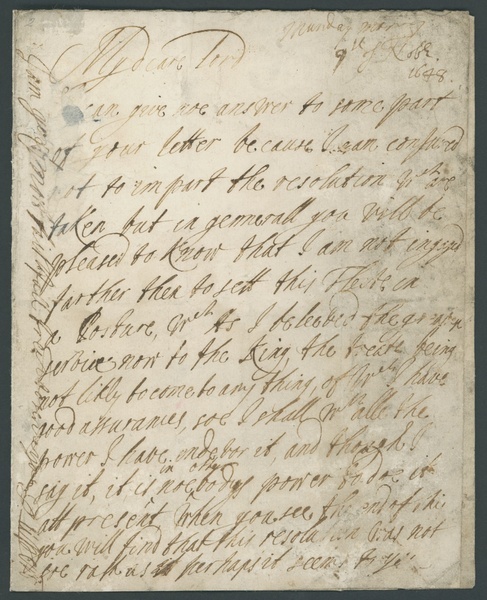 Munday
9th of 8obr.
1648.
My deare Lord
I can give noe answer to some part
of your letter because I am confined
not to impart the resolution wch are
taken but in gennerall you will be
pleased to know that I am not ingagd
farther then to sett this Fleete in
a Posture, wch as I beleeve the greatest
service now to the King, the treate being
not likly to come to any thing, of wch I have
good assurances, soe I shall wth alle the
power I have endevor it, and though I
say it, it is in noe other bodys power to doe it
att present, when you see the end of this
you will find that this resolution was not
soe rash as perhaps it seems to you